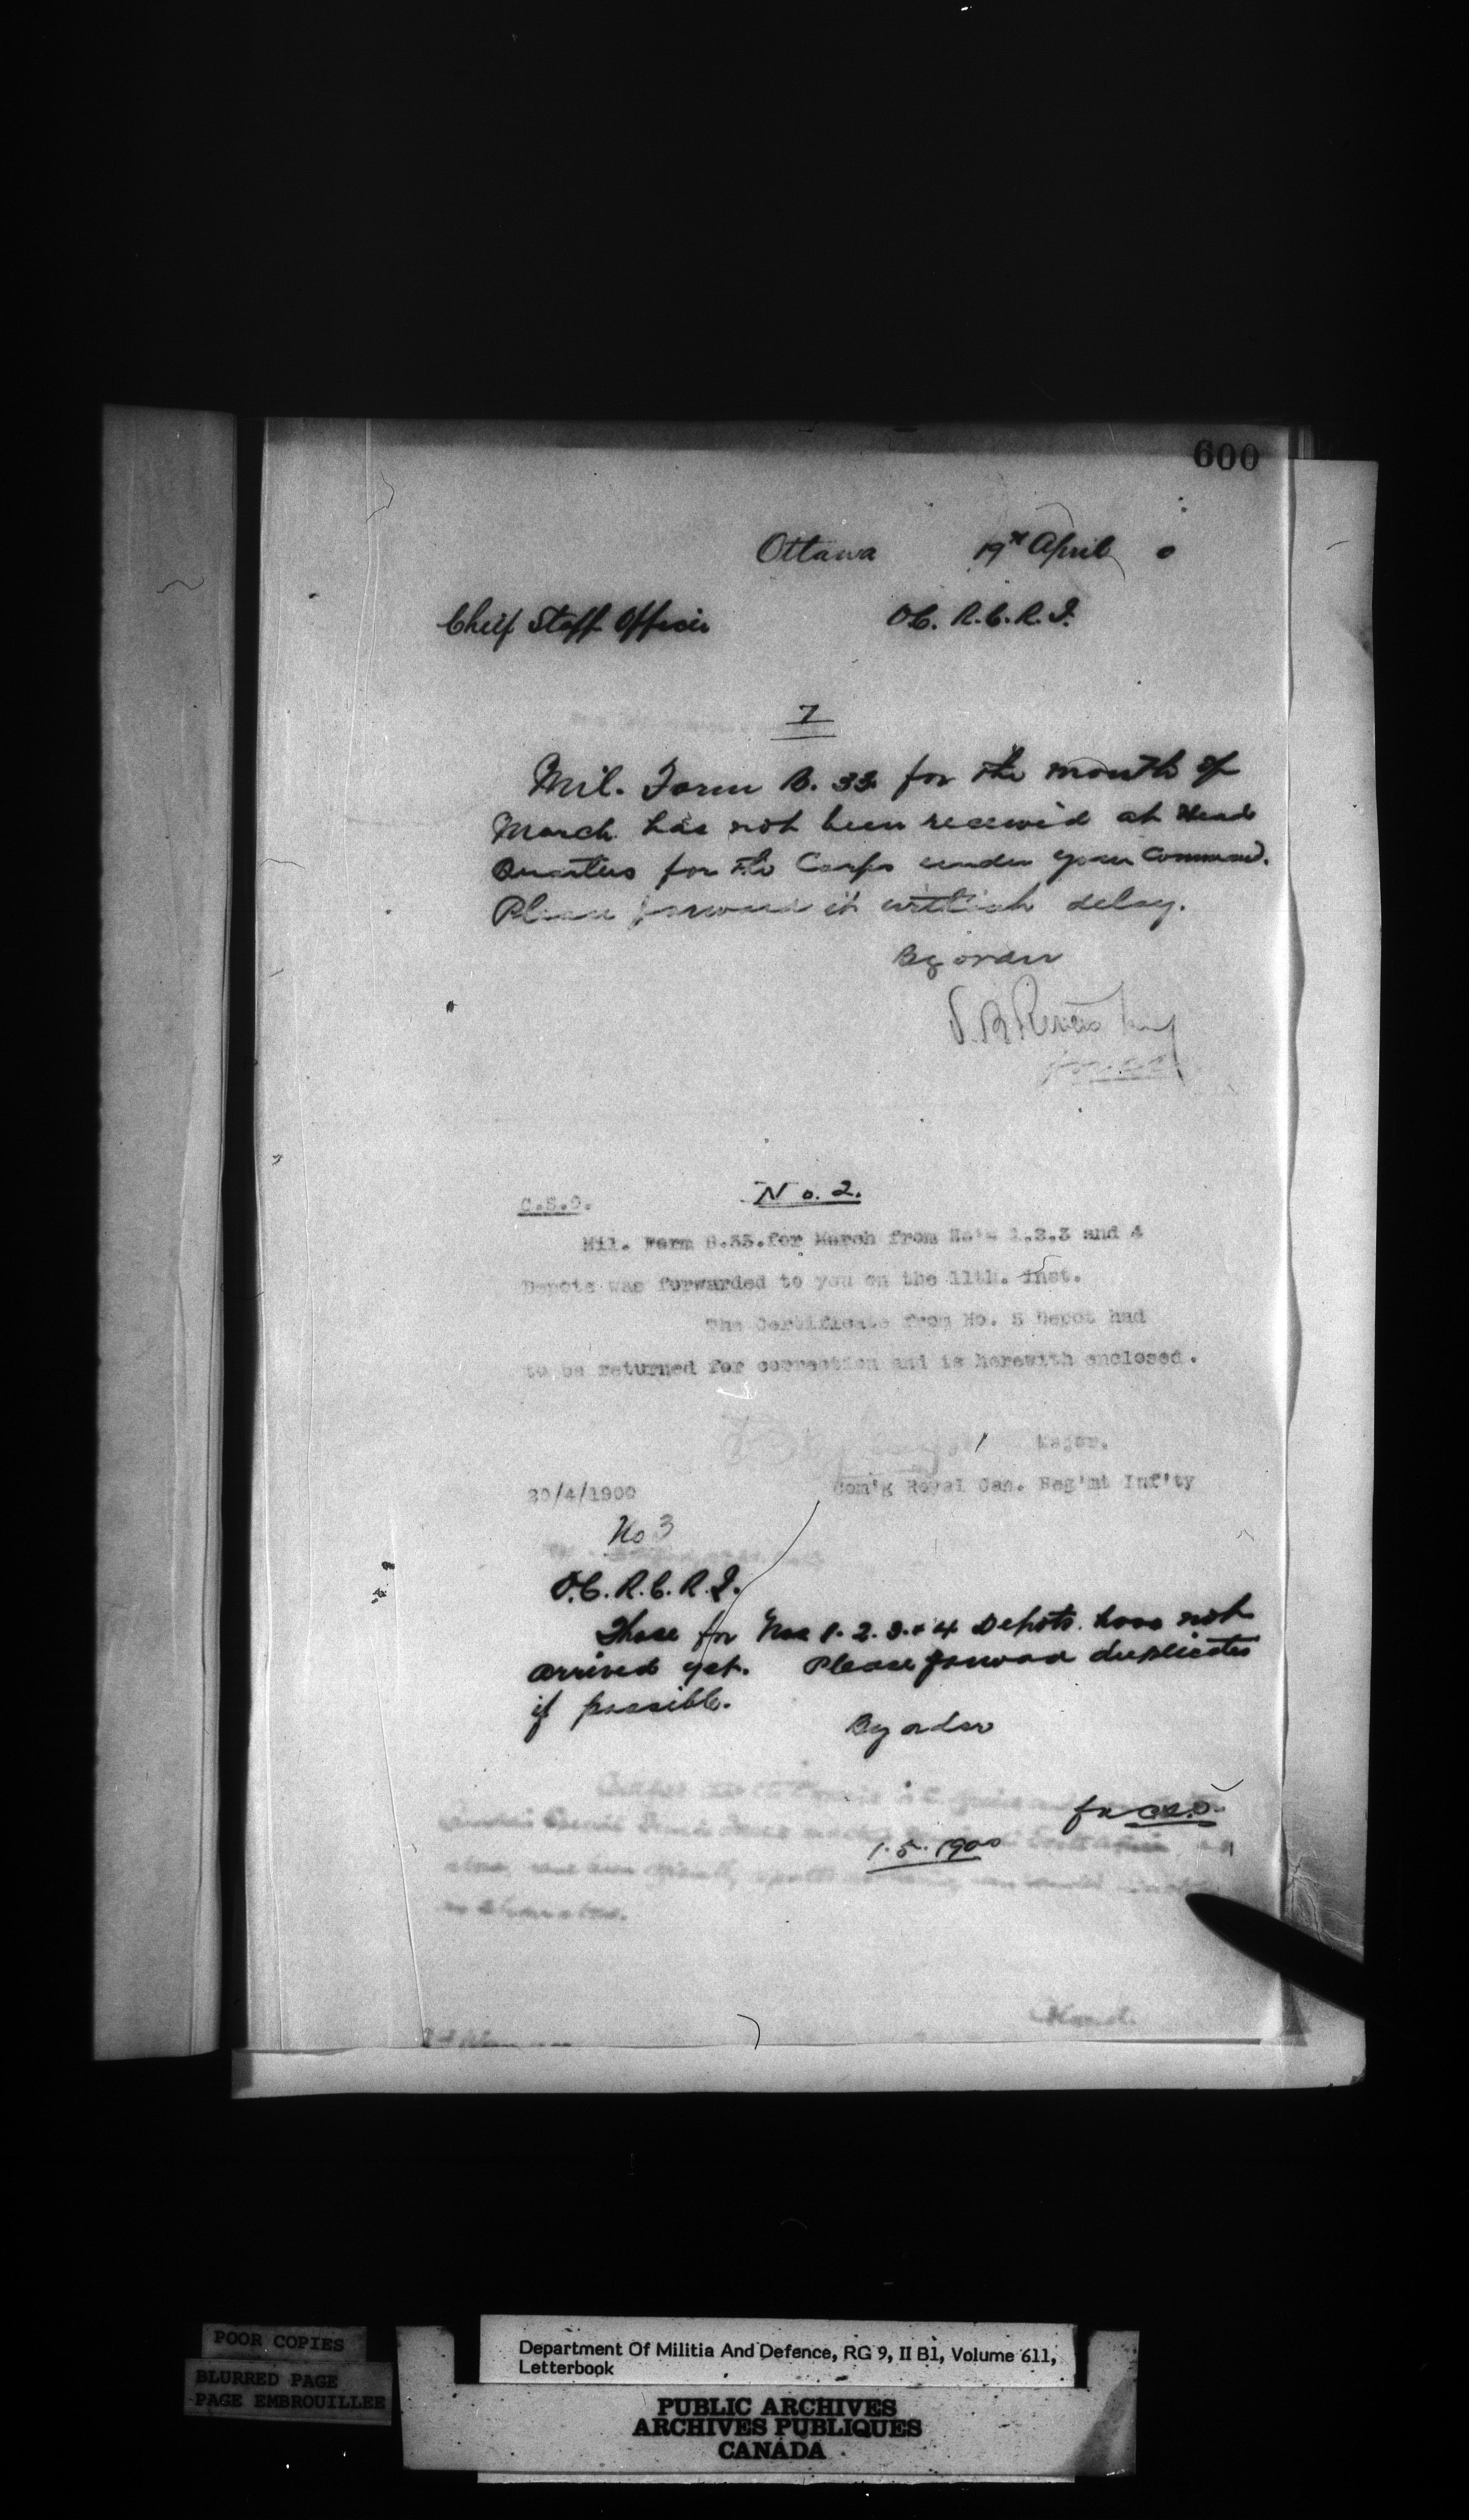 600
Ottawa 19th April 0
Cheif Staff Officer O.C. R.C.R.I.
1
Mil. Form B. 33 for the month of
March has not been received at Head
Quarters for the Corps under your Command.
Please forward it without delay.
By order
No. 2.
C.S.O.
Mil. Form B.33. for March from No's 1.2.3 and 4
Depots was forwarded to you on the 11th. inst.
The Certificate from No. 5 Depot had
to be returned for correction and is herewith enclosed.
Major.
20/4/1900 Com'g Royal Can. Reg'mt Inf'ty
No 3
O.C. R.C.R.I.
Those for Nos 1. 2. 3. & 4 Depots have not
arrived yet. Please forward duplicates
if possible.
By order
for C.S.O.
1.5.1900
POOR COPIES
BLURRED PAGE
PAGE EMBROUILLEE
Department Of Militia And Defence, RG 9, II B1, Volume 611,
Letterbook
PUBLIC ARCHIVES
ARCHIVES PUBLIQUES
CANADA